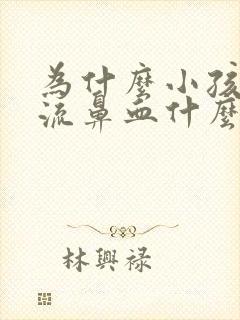 為什麼小孩
流鼻血什麼
林興祿